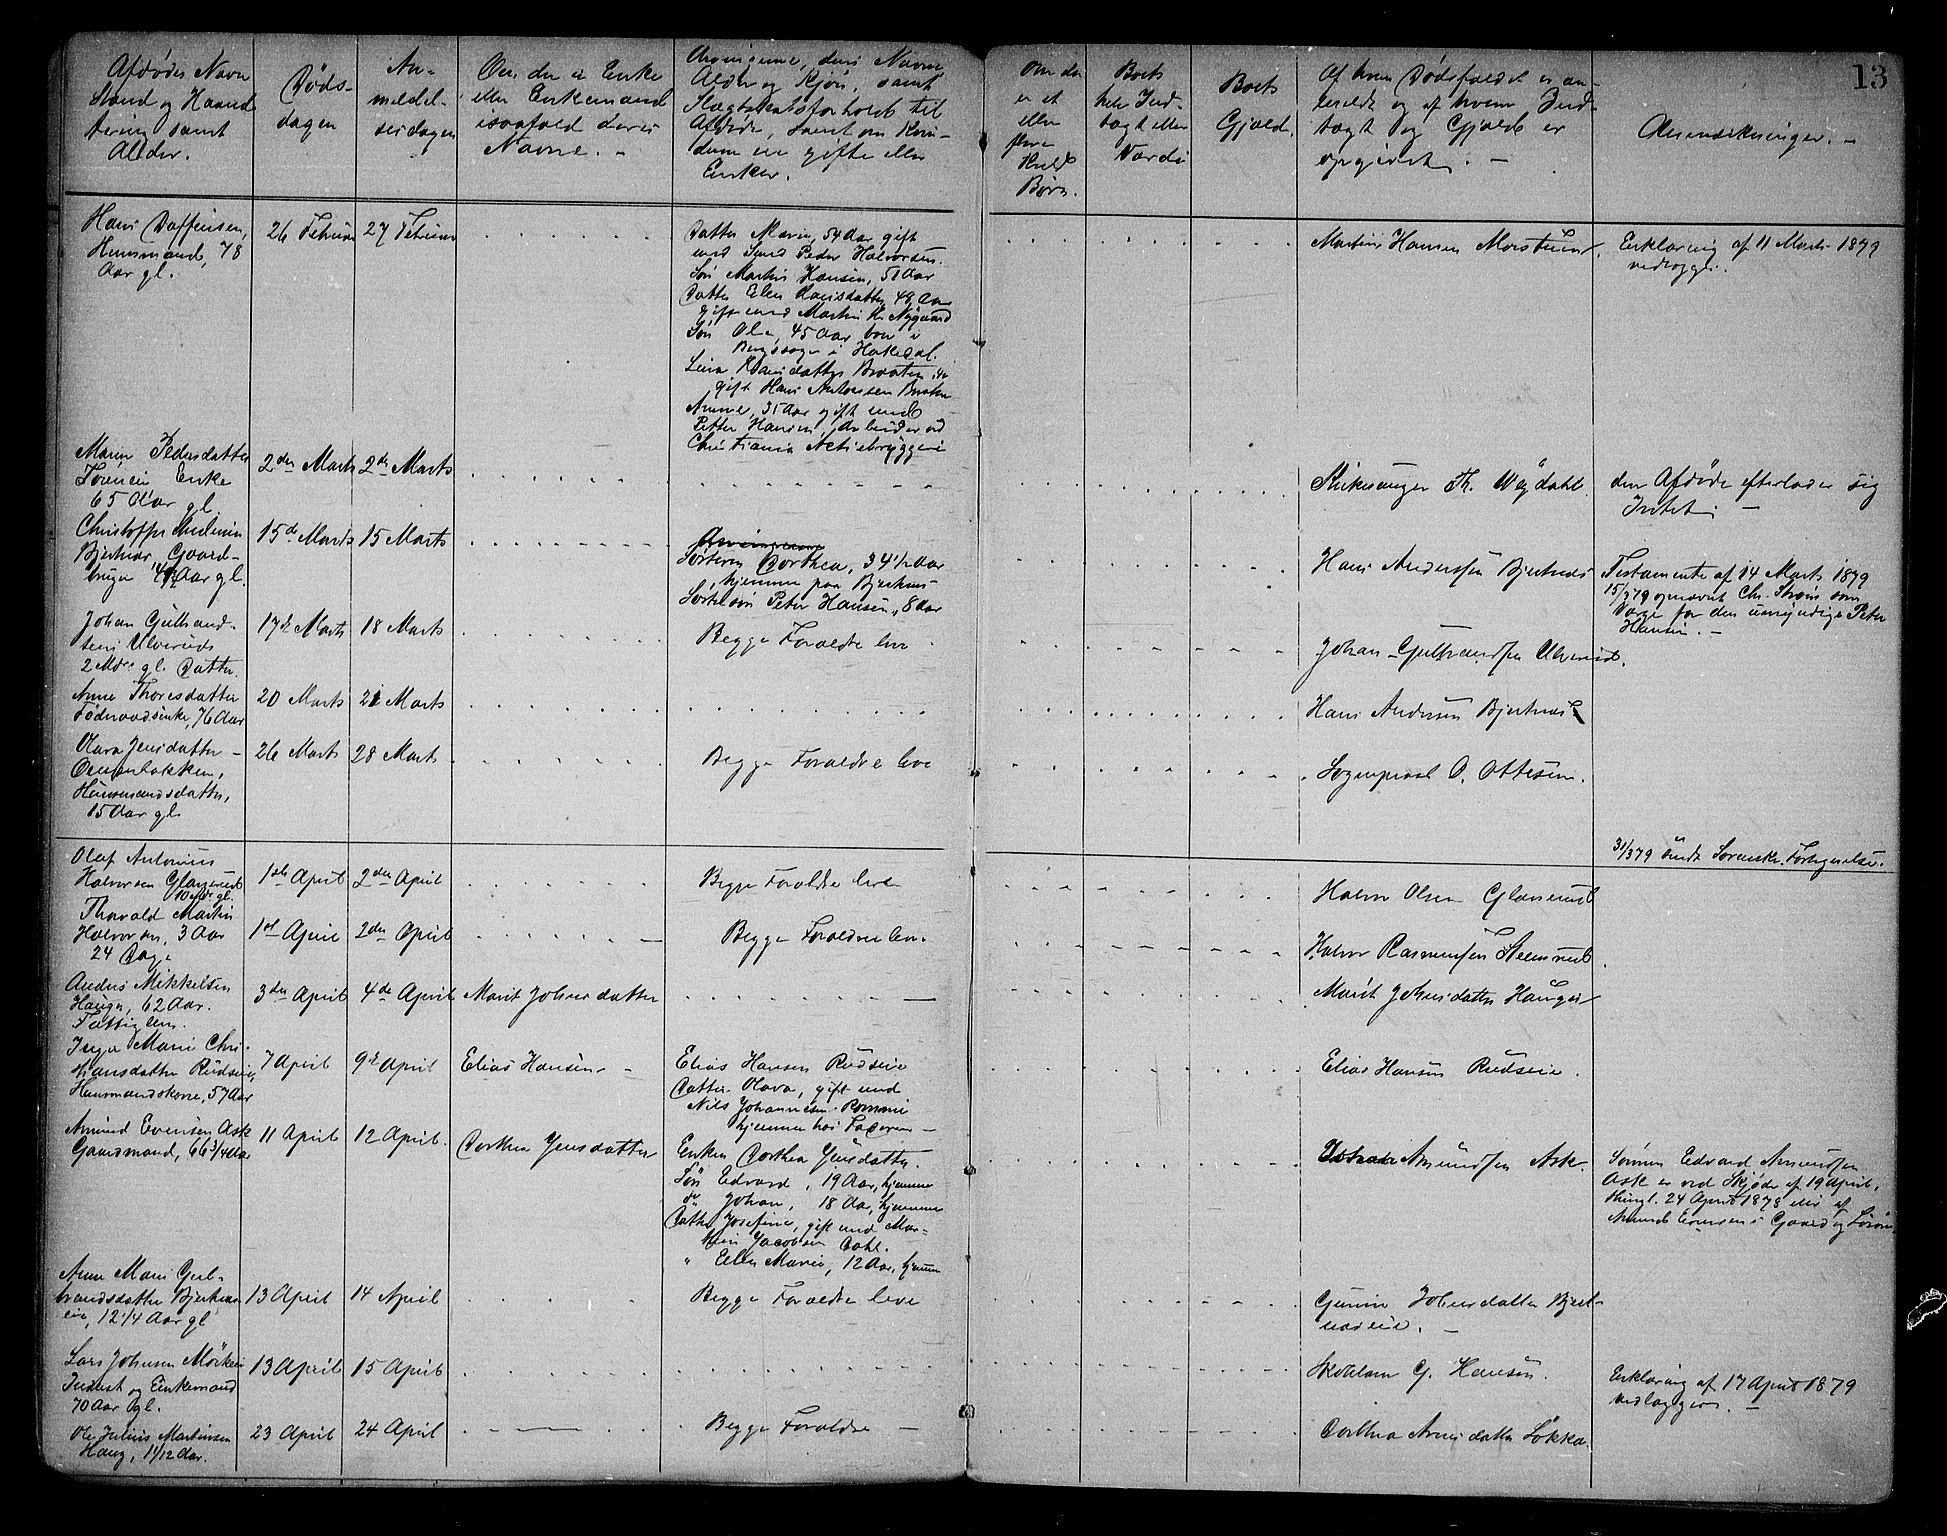 13
Afdødes Navn
Stand og Haand
tering samt
Alder.
Døds-
dagen
An-
meldel-
sesdagen
Om der er Enke
eller Enkemand
isaafald deres
Navne. -
Arvingerne, deres Navne
Alder og Kjøn, samt
Slægtskabsforhold til
Afdøde, samt om Kvin-
derne ere gifte eller
Enker.
Om der
er et
eller
flere
Kuld
Børn.
Boets
hele Ind-
tægt eller
Værdi
Boets
Gjæld.
Af hvem Dødsfaldet er an-
meldt og af hvem Ind-
tægt og Gjæld er
opgivet. -
Anmærkninger. -
Hans
Huusmand, 78
Aar gl.
26 Februar
27 Februar
Datter Maren, 54 Aar gift
med Smed Peder Halvorsen.
Søn Martin Hansen, 50 Aar
Datter Elen Hansdatter, 49 Aar
gift med Martin H. Nygaard
Søn Ole, 45 Aar boer i
i Hakedal.
Lina Hansdatter Braaten
gift Hans Antonsen
Anne, 35 Aar gift med
Petter Hansen, Arbeider ved
Christiania Actiebryggeri
Martin Hansen
Erklæring af 11 Marts 1879
vedlægges.
Maren Pedersdatter
Enke
65 Aar gl.
2den Marts
2den Marts
Kirkesanger Th. Wøjdahl.
den Afdøde efterlader sig
Intet. -
Christoffer Andersen
Bjertnæs, Gaard-
bruger 49 Aar gl.
15de Marts
15 Marts
Søsteren Dorthea, 34 1/2 Aar
hjemme paa Bjertnæs
Søstersøn Peter Hansen, 8 Aar
Hans Anderssen Bjertnæs
Testamente af 14 Marts 1879
15/3 79 opnævnt Chr. Strøm som
Værge for den umyndige Peter
Hansen. -
Johan Gulbrand-
sens Ulveruds
2 Mdr gl. Datter.
17de Marts
18 Marts
Begge Forældre leve
Johan Gulbrandsen Ulverud.
Anne Thoresdatter
Føderaadsenke, 76 Aar
20 Marts
21 Marts
Hans Andersen Bjertnæs
Olava Jensdatter -
Huusmandsdatter,
15 Aar gl.
26 Marts
28 Marts
Begge Forældre leve
Sogneprest O. Ottesen.
31/3 79 sendt Sorensk. Fortegnelse.
Olaf Antonius
Halvorsen Glaserud
1ste April
2den April
Begge Forældre leve
Halvor Olsen Glaserud
Thorvald Martin
Halvorsen, 3 Aar
24 Dage
1ste April
2den April
Begge Forældre leve
Halvor Rasmussen Steensrud
Anders Mikkelsen
Hauger, 62 Aar.
Fattiglem.
3den April
4de April
Marit Johnsdatter
Marit Johnsdatter Hauger
Inger Marie Chri-
stiansdatter Rudseie,
Huusmandskone, 57 Aar
7 April
9de April
Elias Hansen -
Elias Hansen Rudseie
Datter Olava, gift med
Nils Johannesen Rommi
hjemme hos Faderen -
Elias Hansen Rudseie.
Amund Evensen Ask
Gaardmand, 66 3/4 Aar
11 April
12 April.
Dorthea Jensdatter
Enken Dorthea Jensdatter.
Søn Edvard, 19 Aar, hjemme
do Johan, 18 Aar, hjemme
Datter Josefine, gift med Mar-
thin Jacobsen Dahl.
" Ellen Marie, 12 Aar, hjemme
Johan Amundsen Ask.
Sønnen Edvard Amundsen
Ask er ved Skjøde af 19 April,
thingl. 24 April 1878 eier af
Amund Evensens Gaard og Løsøre
Anne Marie Gul-
brandsdatter Bjertnæs
eie, 12 1/4 Aar gl
13 April
14 April
Begge Forældre leve
Gunine Johnsdatter Bjert-
næseie. -
Lars Johnsen
Inderst og Enkemand
70 Aar gl.
13 April
15 April
Skolelærer G. Hansen.
Erklæring af 17 April 1879
vedlægges. -
Ole Julius Martinsen
Haug, 11/12 Aar.
23 April
24 April
Begge Forældre -
Dorthea Arnesdatter Løkka.